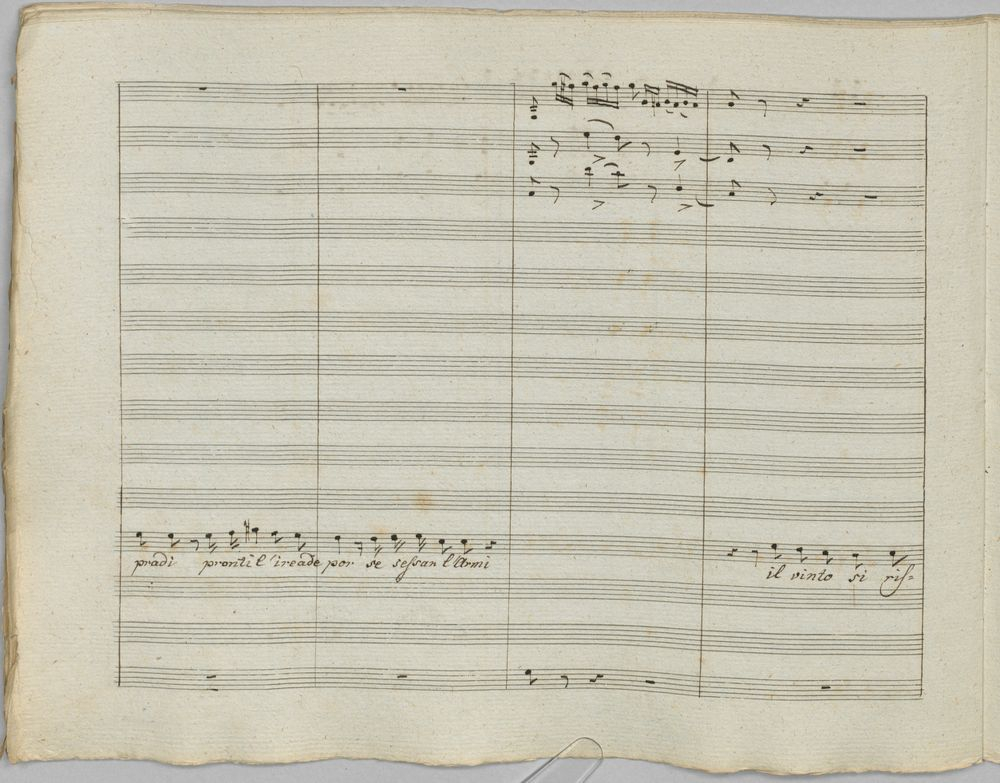 pradi pronti l'ireade por se sessan l'Armi il vinto si ris=